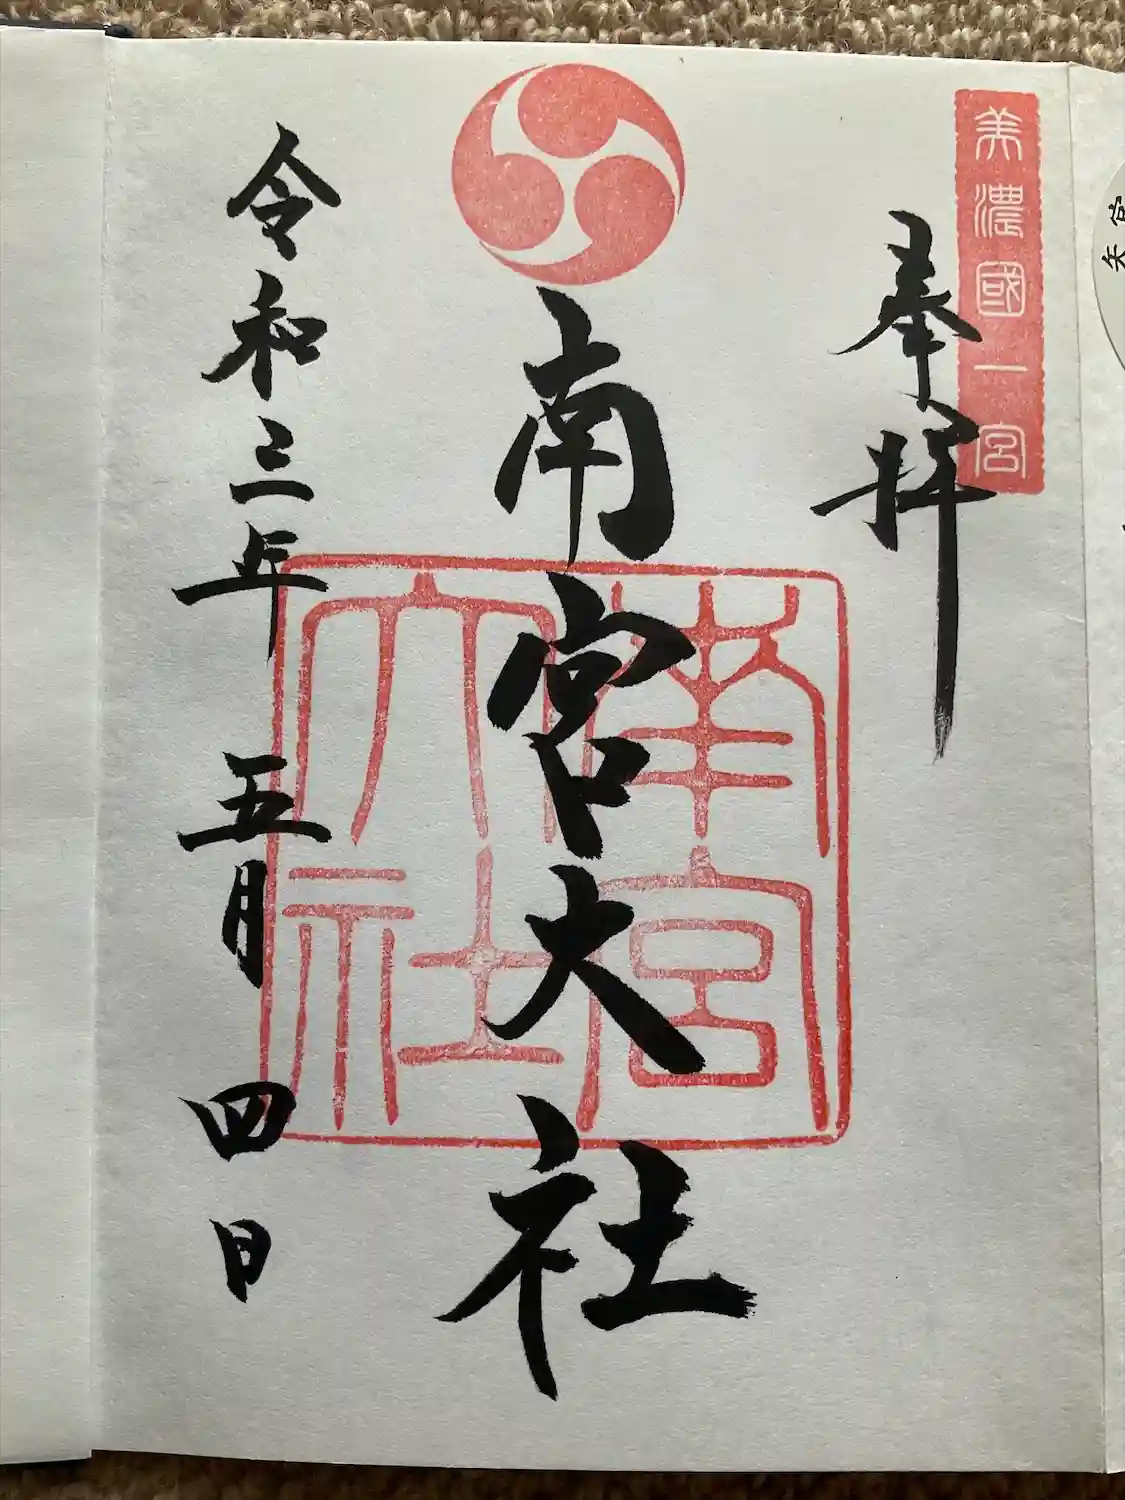 美濃國一宮
奉拝
南宮大社
南宮
大社
令和三年五月四日